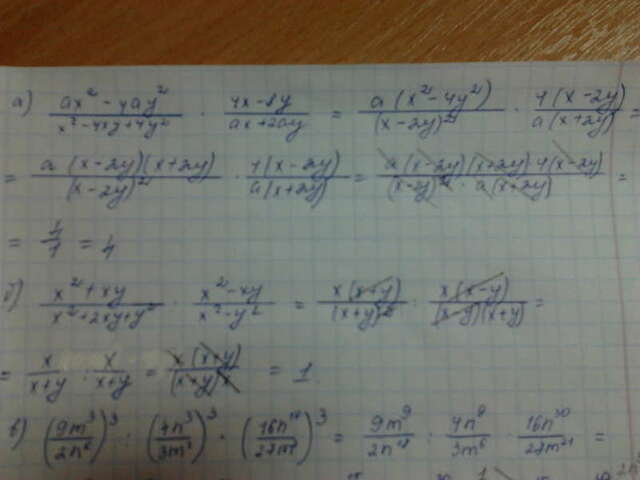 а) (ax² - 4ay²)/(x² - 4xy + 4y²) · (4x - 8y)/(ax + 2ay) = a(x² - 4y²)/(x - 2y)² · 4(x - 2y)/a(x + 2y) =
= a(x - 2y)(x + 2y)/(x - 2y)² · 4(x - 2y)/a(x + 2y) = a(x - 2y)(x + 2y) 4(x - 2y)/(x - 2y)² · a(x + 2y) =
= 4/1 = 4
б) (x² + xy)/(x² + 2xy + y²) · (x² - xy)/(x² - y²) = x(x + y)/(x + y)² · x(x - y)/(x - y)(x + y) =
= x/(x + y) · x/(x + y) = x(x + y)/(x + y)x = 1
в) (9m³/2n⁶)³ : (4n³/3m²)³ · (16n¹⁰/27m⁷)³ = 9m⁹/2n¹⁸ · 4n⁹/3m⁶ · 16n³⁰/27m²¹ =